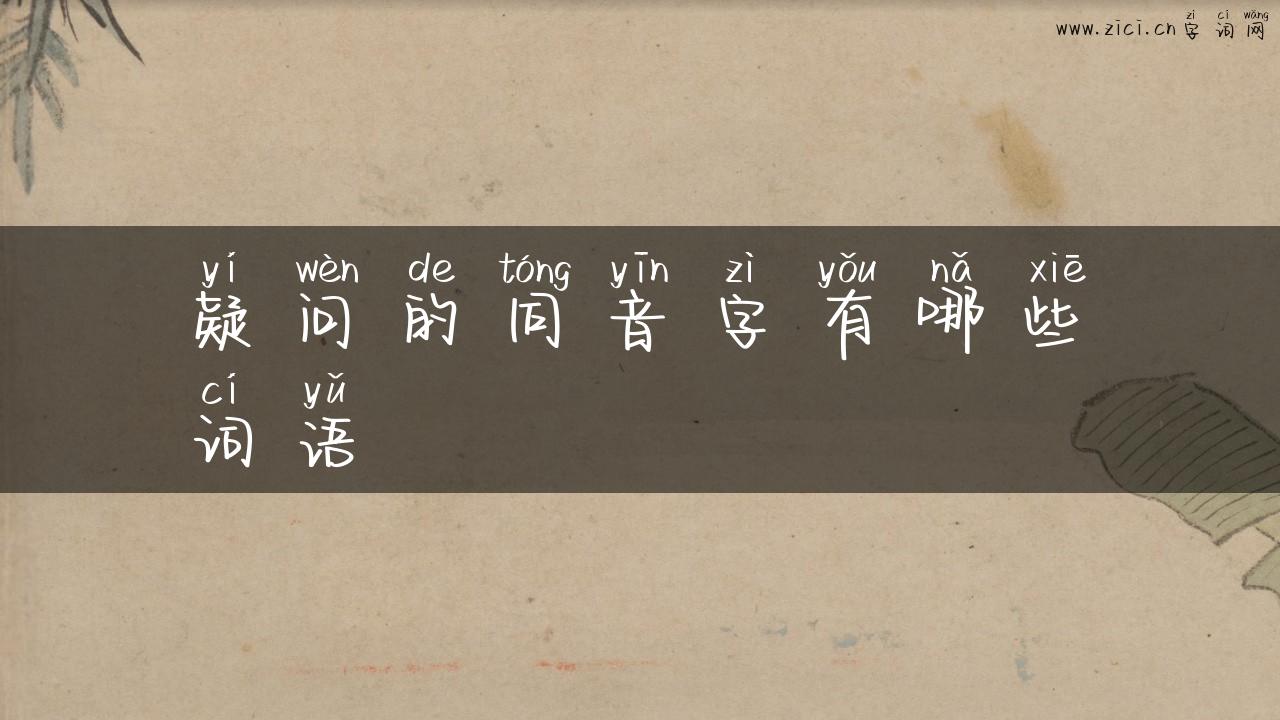 zì cí wǎng
www.zici.cn 字词网
yí wèn de tóng yīn zì yǒu nǎ xiē
疑问的同音字有哪些
cí yǔ
词语